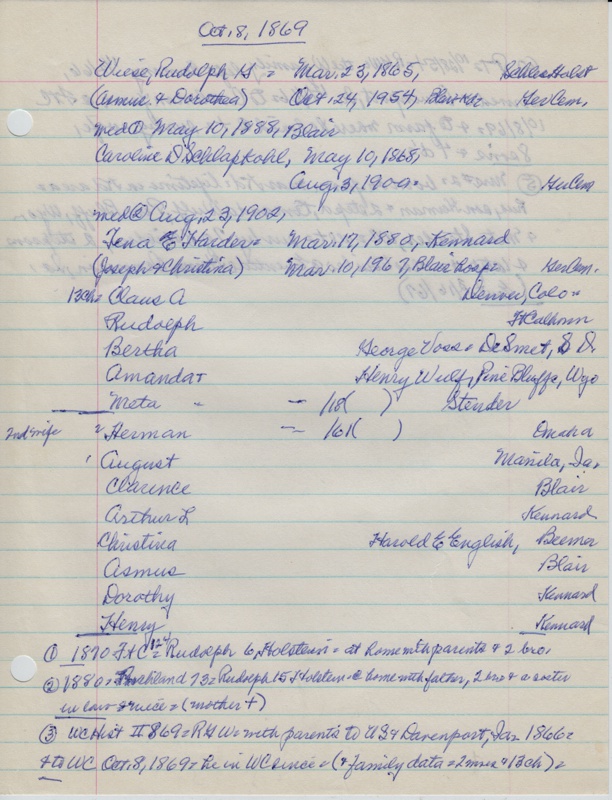 Oct. 8, 1869
Wiese, Rudolph G = Mar. 23, 1865, Schles Holst
(Asmus & Dorothea) Oct. 24, 1954, Blair Ho HerCem.
med① May 10, 1888, Blair
Caroline D Schlapkohl, May 10, 1868,
Aug, 3, 1900= HerCem
med② Aug, 23, 1902,
Tena E Harder= Mar. 17, 1880, Kennard
(Joseph & Christina) Mar. 10, 1967, Blair hosp= HerCem.
13ch= Claus A Denver, Colo=
Rudolph FtCalhoun
Bertha George Voss= DeSmet, S D.
Amanda+ Henry Wulf, Pine Bluffs, Wyo
Meta - - /18( ) Stender
2nd wife " Herman - /61( ) Omaha
' August Manila, Ia.
Clarence Blair
Arthur L Kennard
Christina Harold E English, Beemer
Asmus Blair
Dorothy Kennard
Henry Kennard
① 1870 FtC 124= Rudolph 6, Holstein= at home with parents & 2 bro.
② 1880= Richland 73= Rudolph 15 Holstein= @ home with father, 2 bro & a sister
in law & niece= (mother +)
③ WC Hist II 869= RG W= with parents to US & Davenport, Ia= 1866=
& to WC Oct. 8, 1869= he in WC since= (& family data= 2 mes & 13ch)=